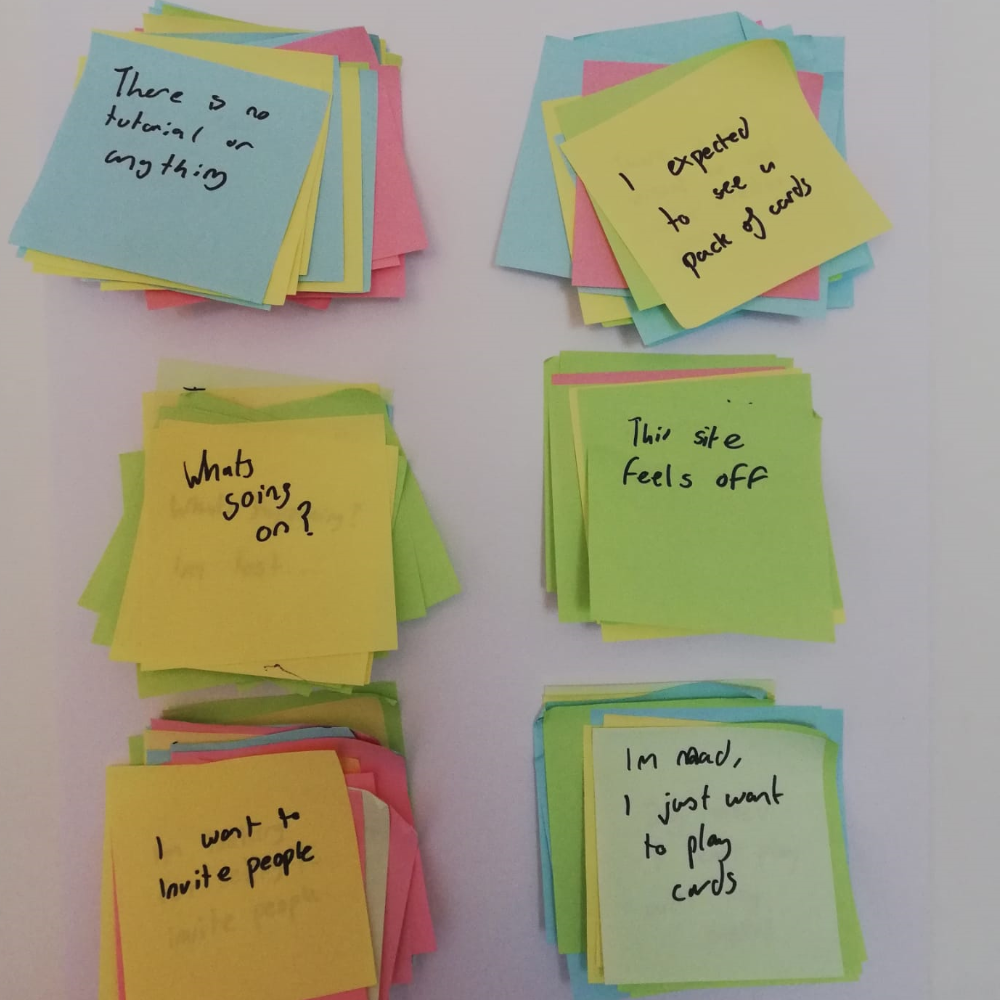 There is no
tutorial or
anything
I expected
to see a
pack of cards
Whats
going
on?
This site
feels off
I want to
invite people
invite people
Im mad,
I just want
to play
cards